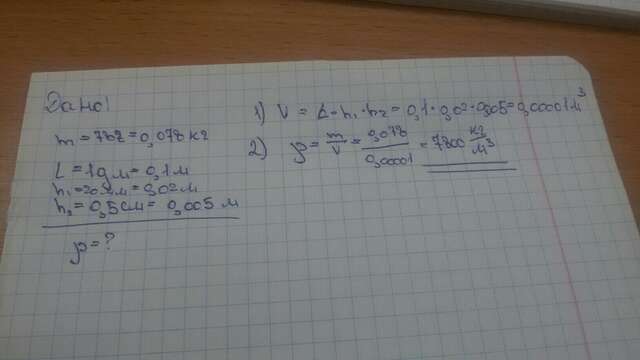 Дано!
m = 78г = 0,078 кг
L = 1дм = 0,1м
h₁ = 20мм = 0,02 м
h₂ = 0,5см = 0,005 м
ρ = ?
1) V = L · h₁ · h₂ = 0,1 · 0,02 · 0,005 = 0,00001 м³
2) ρ = m/V = 0,078/0,00001 = 7800 кг/м³